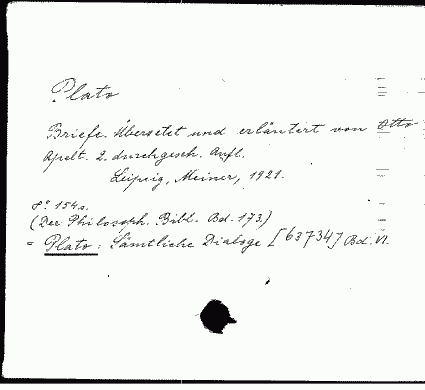 Plato
Briefe. Übersetzt und erläutert von Otto
Apelt. 2. durchgeseh. Aufl.
Leipzig, Meiner, 1921.
8° 154 s.
(Der Philosoph. Bibl. Bd. 173.)
= Plato: Sämtliche Dialoge [63734] Bd. VI.